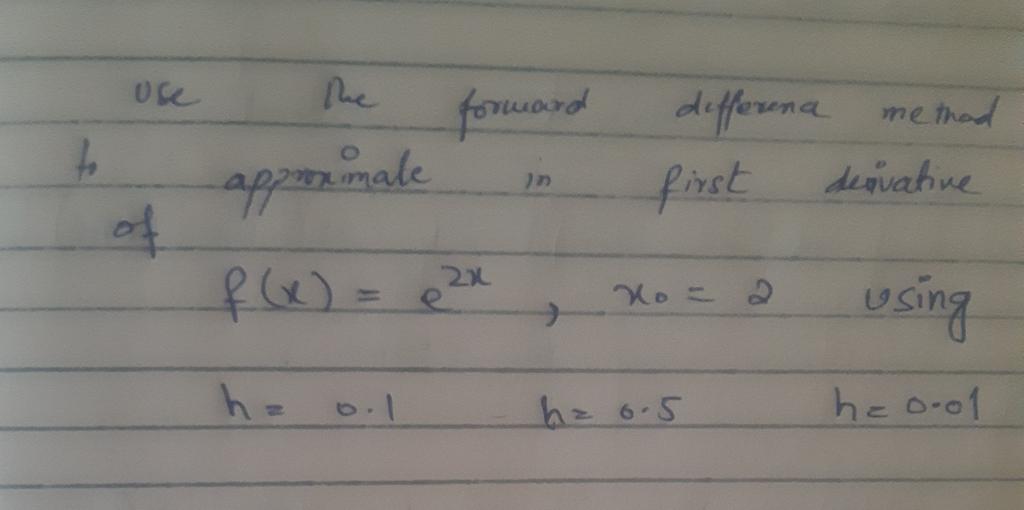 use the forward differena method
to approximate in first derivative
of
f(x) = e^{2x} , x₀ = 2 using
h = 0.1 h = 0.5 h = 0.01